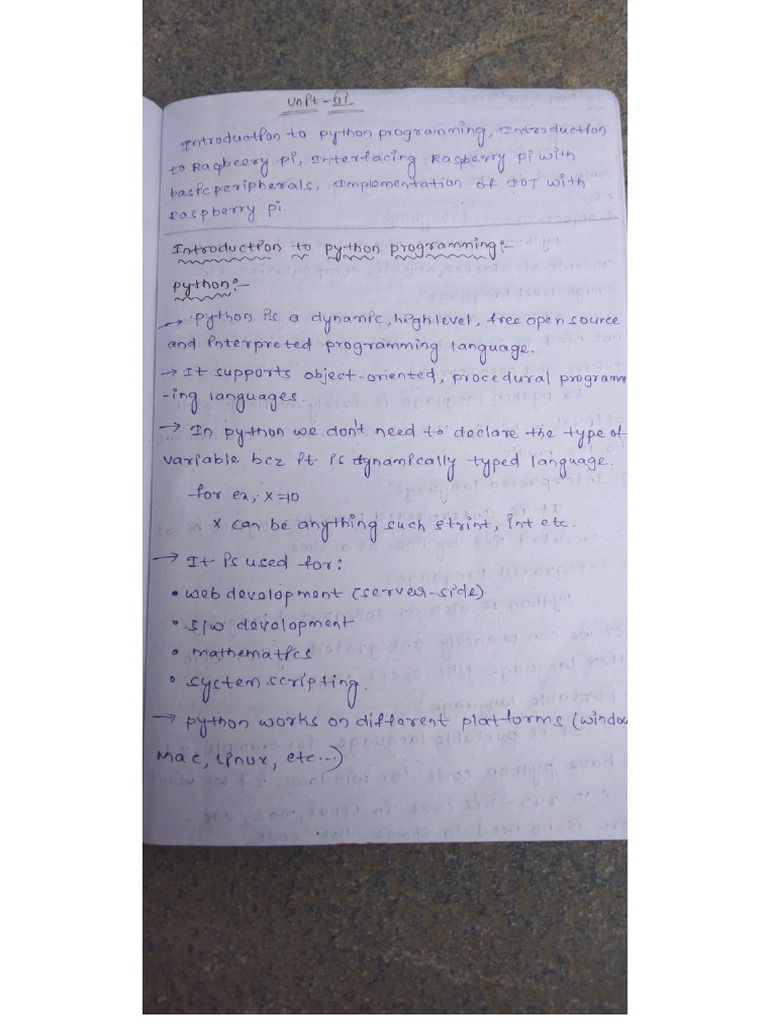 Unit-III
Introduction to python programming, Introduction
to Raspbeery pi, Interfacing Raspberry pi with
basic peripherals, Implementation of IOT with
Raspberry pi.
Introduction to python programming:-
python:-
→ python is a dynamic, high level, free open source
and interpreted programming language.
→ It supports object-oriented, procedural programm
-ing languages.
→ In python we don't need to declare the type of
variable bcz it is dynamically typed language.
for ex, x=10
x can be anything such strint, int etc...
→ It is used for:
• web devolopment (server-side)
• s/w devolopment
• mathematics
• system scripting.
→ python works on different platforms (window
Mac, linux, etc...)